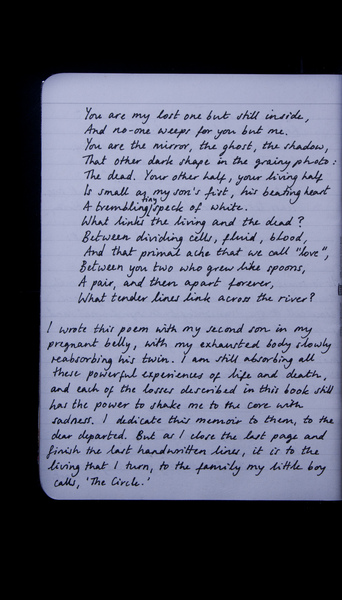 You are my lost one but still inside,
And no-one weeps for you but me.
You are the mirror, the ghost, the shadow,
That other dark shape in the grainy photo:
The dead. Your other half, your living half
Is small as my son's fist, his beating heart
A trembling tiny speck of white.
What links the living and the dead?
Between dividing cells, fluid, blood,
And that primal ache that we call "love",
Between you two who grew like spoons,
A pair, and then apart forever,
What tender lines link across the river?
I wrote this poem with my second son in my
pregnant belly, with my exhausted body slowly
reabsorbing his twin. I am still absorbing all
these powerful experiences of life and death,
and each of the losses described in this book still
has the power to shake me to the core with
sadness. I dedicate this memoir to them, to the
dear departed. But as I close the last page and
finish the last handwritten lines, it is to the
living that I turn, to the family my little boy
calls, 'The Circle.'